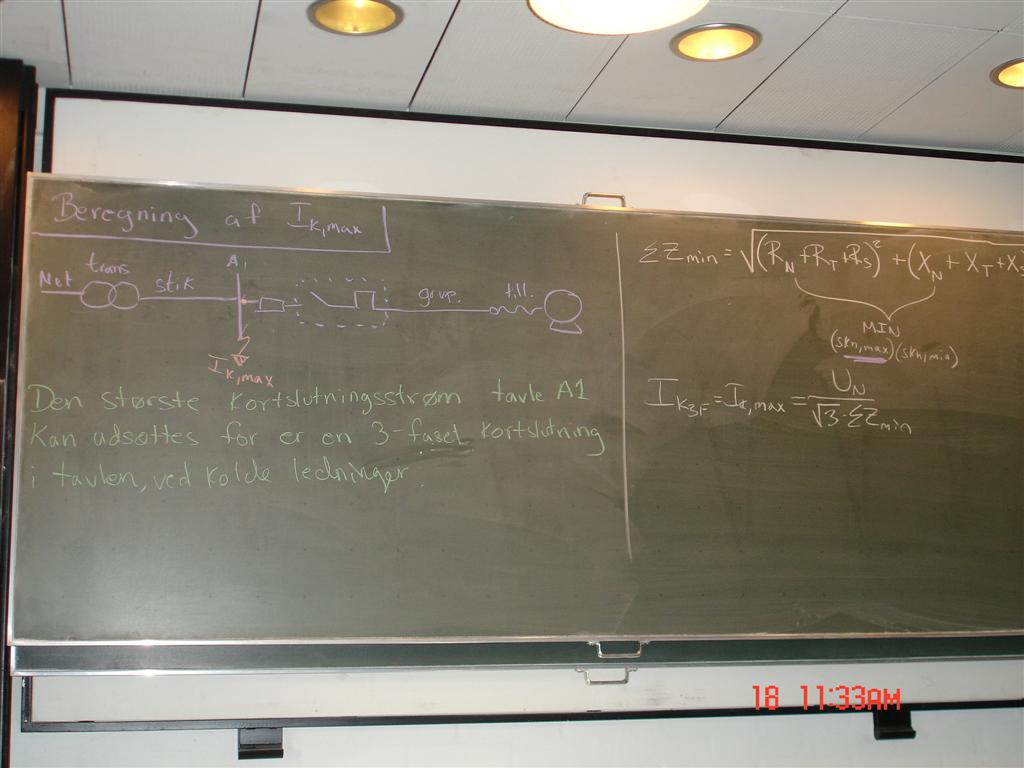 Beregning af I_K,max
Net trans stik A1 grup. till.
I_K,max
Den største kortslutningsstrøm tavle A1
kan udsættes for er en 3-faset kortslutning
i tavlen, ved kolde ledninger
ΣZ_min = √(R_N + R_T + R_S)² + (X_N + X_T + X_S
MIN
(Skn,max) (Skn,min)
I_K3F = I_K,max = U_N / √3 · ΣZ_min
18 11:33AM